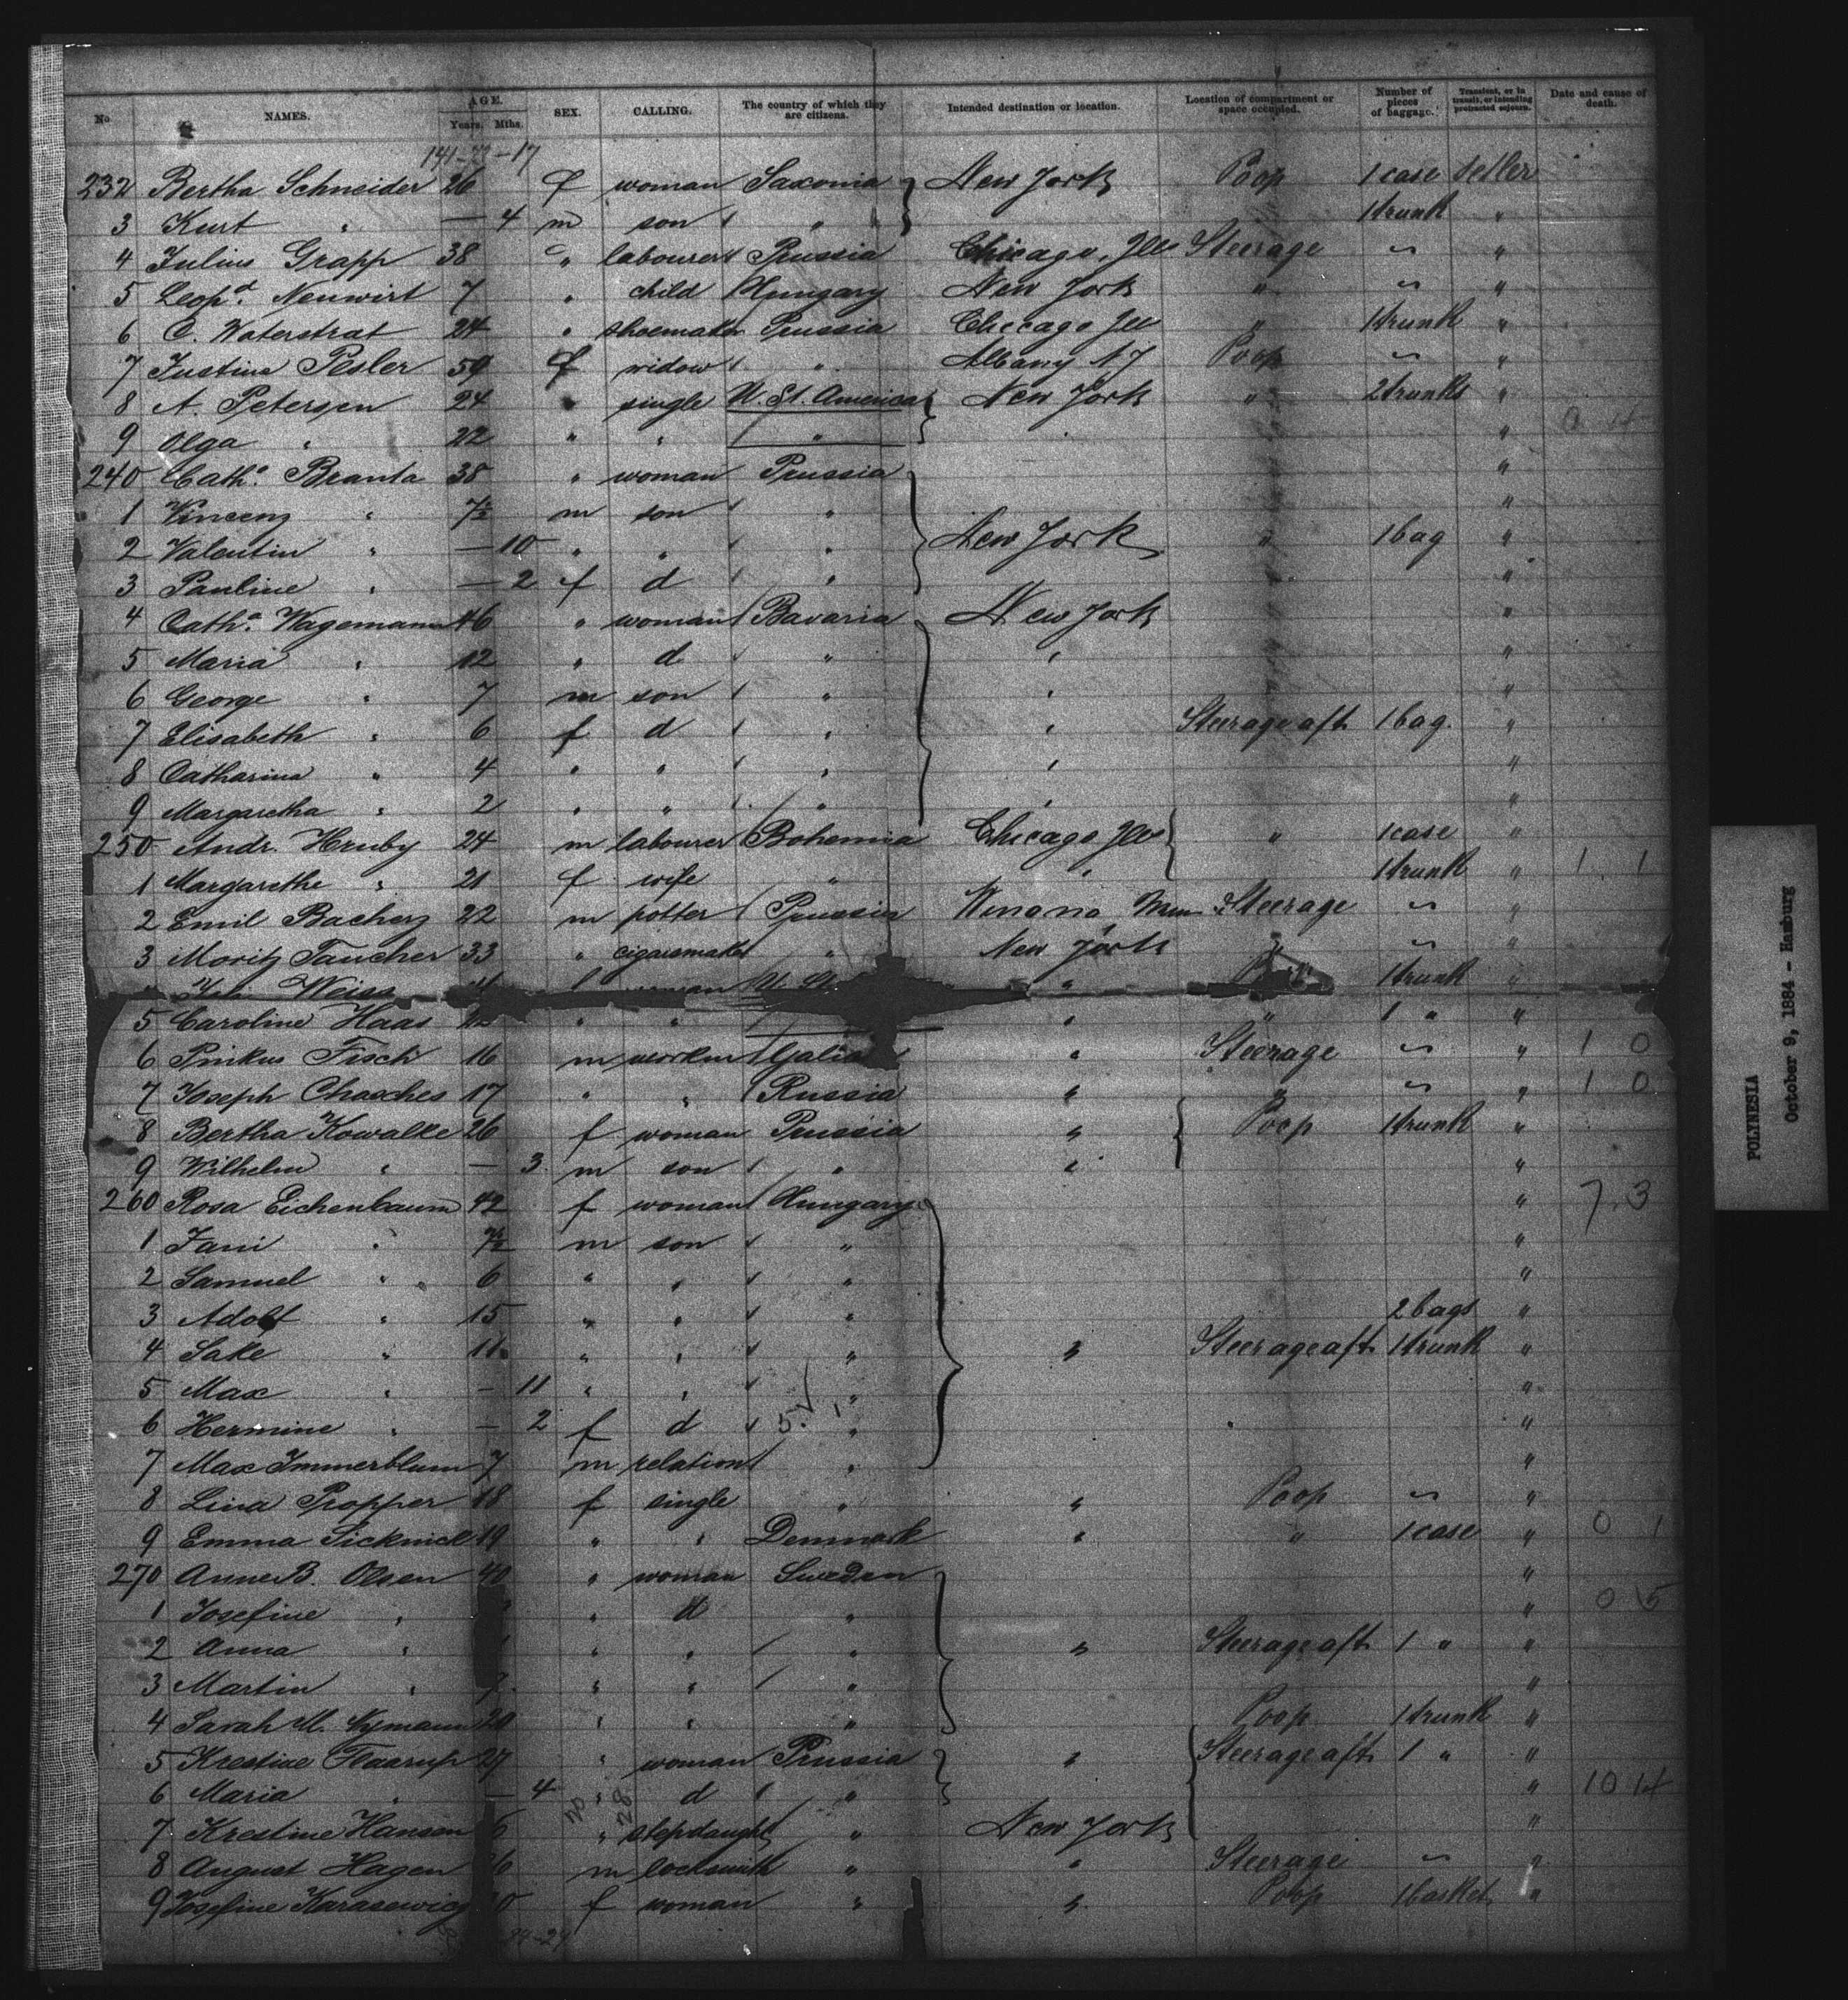 No NAMES. AGE. Years. Mths. SEX. CALLING. The country of which they are citizens. Intended destination or location. Location of compartment or space occupied. Number of pieces of baggage. Transient, or in transit, or intending protracted sojourn. Date and cause of death.
232 Bertha Schneider 26 f woman Saxonia New York Poop 1 case
3 Kurt " — 4 m son " 1 trunk "
4 Julius Grapp 38 " labourer Prussia Chicago, Ills Steerage — "
5 Leopd. Neuwirt 7 " child Hungary New York " — "
6 C. Waterstrat 24 " shoemaker Prussia Chicago Ills " 1 trunk "
7 Justine Pesler 59 f widow " Albany N Y Poop — "
8 A. Petersen 24 " single U. St. America New York " 2 trunks "
9 Olga " 22 " " " "
240 Catha. Branta 38 " woman Prussia "
1 Vincenz " 7½ m son " "
2 Valentin " — 10 " " " New York " 1 bag "
3 Pauline " — 2 f d " "
4 Catha. Wagemann 46 " woman Bavaria New York "
5 Maria " 12 " d " " "
6 George " 7 m son " " "
7 Elisabeth " 6 f d " " Steerage aft 1 bag. "
8 Catharina " 4 " " " " "
9 Margaretha " 2 " " " " "
250 Andr. Hruby 24 m labourer Bohemia Chicago Ills " 1 case "
1 Margarethe " 21 f wife " " 1 trunk " 1 1
2 Emil Bacherz 22 m potter Prussia Winona Steerage — "
3 Moritz Taucher 33 " cigarsmaker " New York " — "
Weiss woman U. St. " 1 trunk "
5 Caroline Haas " " " " 1 " "
6 Pinkus Fisch 16 m worker " Steerage — " 1 0
7 Joseph Chasches 17 " " Russia " " — " 1 0
8 Bertha Kowalke 26 f woman Prussia " Poop 1 trunk "
9 Wilhelm " — 3 m son " " "
260 Rosa Eichenbaum 42 f woman Hungary " 7. 3
1 Jani " 7½ m son " "
2 Samuel " 6 " " " "
3 Adolf " 15 " " " 2 bags "
4 Sake " 11 " " " " Steerage aft 1 trunk "
5 Max " — 11 " " " "
6 Hermine " — 2 f d 5. " "
7 Max Immerblum 7 m relation " "
8 Lina Propper 18 f single " " Poop — "
9 Emma Sicknick 19 " " Denmark " " 1 case " 0 1
270 Anne B. Olsen 40 " woman Sweden "
1 Josefine " " d " " 0 5
2 Anna " " " " " Steerage aft 1 " "
3 Martin " " " " "
4 Sarah M. Nymann 20 " " " Poop 1 trunk "
5 Krestine Flaarup 27 " woman Prussia " Steerage aft 1 " "
6 Maria " — 4 " d " " 10 14
7 Krestine Hansen 6 " stepdaught " New York "
8 August Hagen m locksmith " " Steerage — "
9 Josefine Karasewicz f woman " " Poop 1 basket "
POLYNESIA
October 9, 1884 - Hamburg